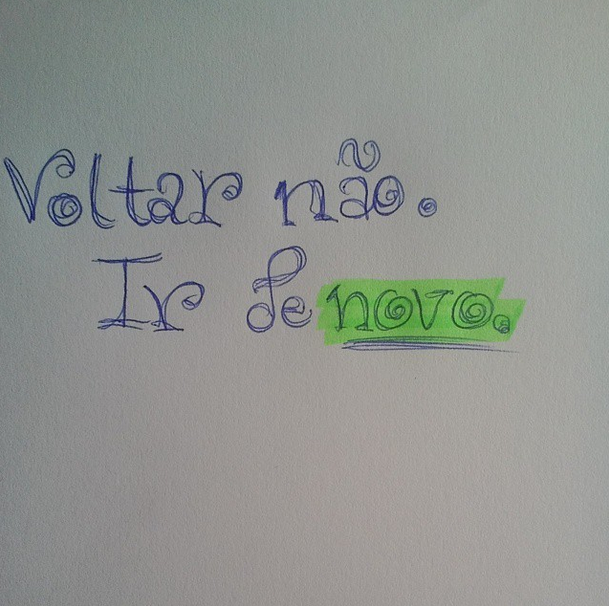 Voltar não.
Ir de novo.